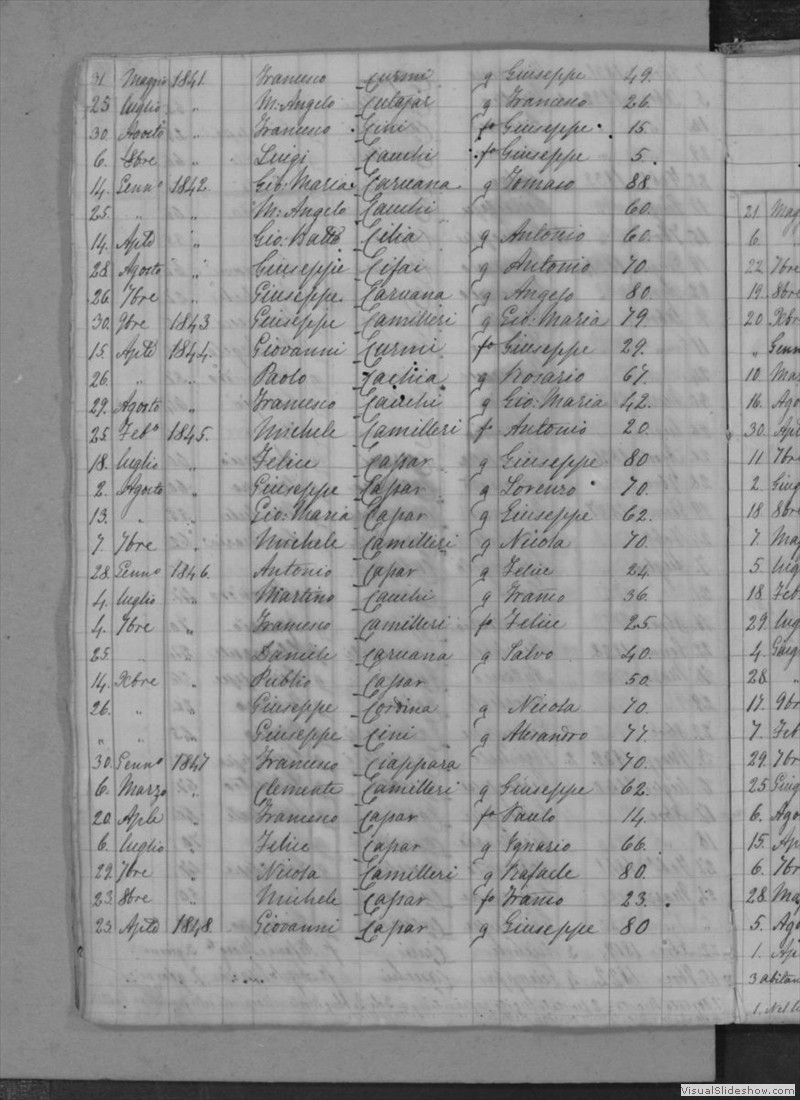 31. Maggio 1841. Francesco Curmi g Giuseppe 49.
25 luglio " M: Angelo Culajar g Francesco 26.
30. Agosto " Francesco Cini fo Giuseppe. 15.
6. 8bre " Luigi Cauchi fo Giuseppe 5.
14. Genno 1842. Gio: Maria Caruana g Tomaso 88
25. " " M: Angelo Cauchi 60.
14. Aple " Gio: Batta Cilia g Antonio 60.
28. Agosto " Giuseppe Cifai g Antonio 70.
26. 7bre " Giuseppe. Caruana g Angelo 80.
30. 9bre 1843 Giuseppe Camilleri g Gio: Maria 79.
15. Aple 1844. Giovanni Curmi fo Giuseppe 29.
26. " " Paolo g Rosario 67.
29. Agosto " Francesco Cauchi g Gio: Maria 42.
25. Febo 1845. Michele Camilleri f Antonio 20.
18. luglio " Felice Capar g Giuseppe 80
2. Agosto " Giuseppe Capar g Lorenzo 70.
13. " " Gio: Maria Capar g Giuseppe 62.
7. 7bre " Michele Camilleri g Nicola 70.
28. Genno 1846. Antonio Capar g Felice 24.
4. luglio " Martino Cauchi g Franco 36.
4. 7bre " Francesco Camilleri fo Felice 25.
25. " " Daniele Caruana g Salvo 40.
14. Xbre " Publio Capar 50.
26. " " Giuseppe Cordina g Nicola 70.
" " " Giuseppe Cini g Alesandro 77.
30. Genno 1847 Francesco Ciappara 70.
6. Marzo " Clemente Camilleri g Giuseppe 62.
20. Aple " Francesco Capar fo Paulo 14.
6. luglio " Felice Capar g Ignazio 66.
29. 7bre " Nicola Camilleri g Rafaele 80.
23. 8bre " Michele Capar fo Franco 23.
23. Aple 1848. Giovanni Capar g Giuseppe 80
21. Mag
6. "
22 7bre
19. 8bre
20 Xbre
" Genn
10. Mar
16. Ago
30. Apl
11. 7bre
2. Giug
18 8bre
7. Mag
5. lug
18. Feb
29. lug
4. Giug
28. "
17. 9bre
7. Feb
29. 7bre
25 Giug
6. Ago
15. Ap
6. 7br
28. Ma
5. Ago
1. Apl
3 abitan
1. Nel
VisualSlideshow.com